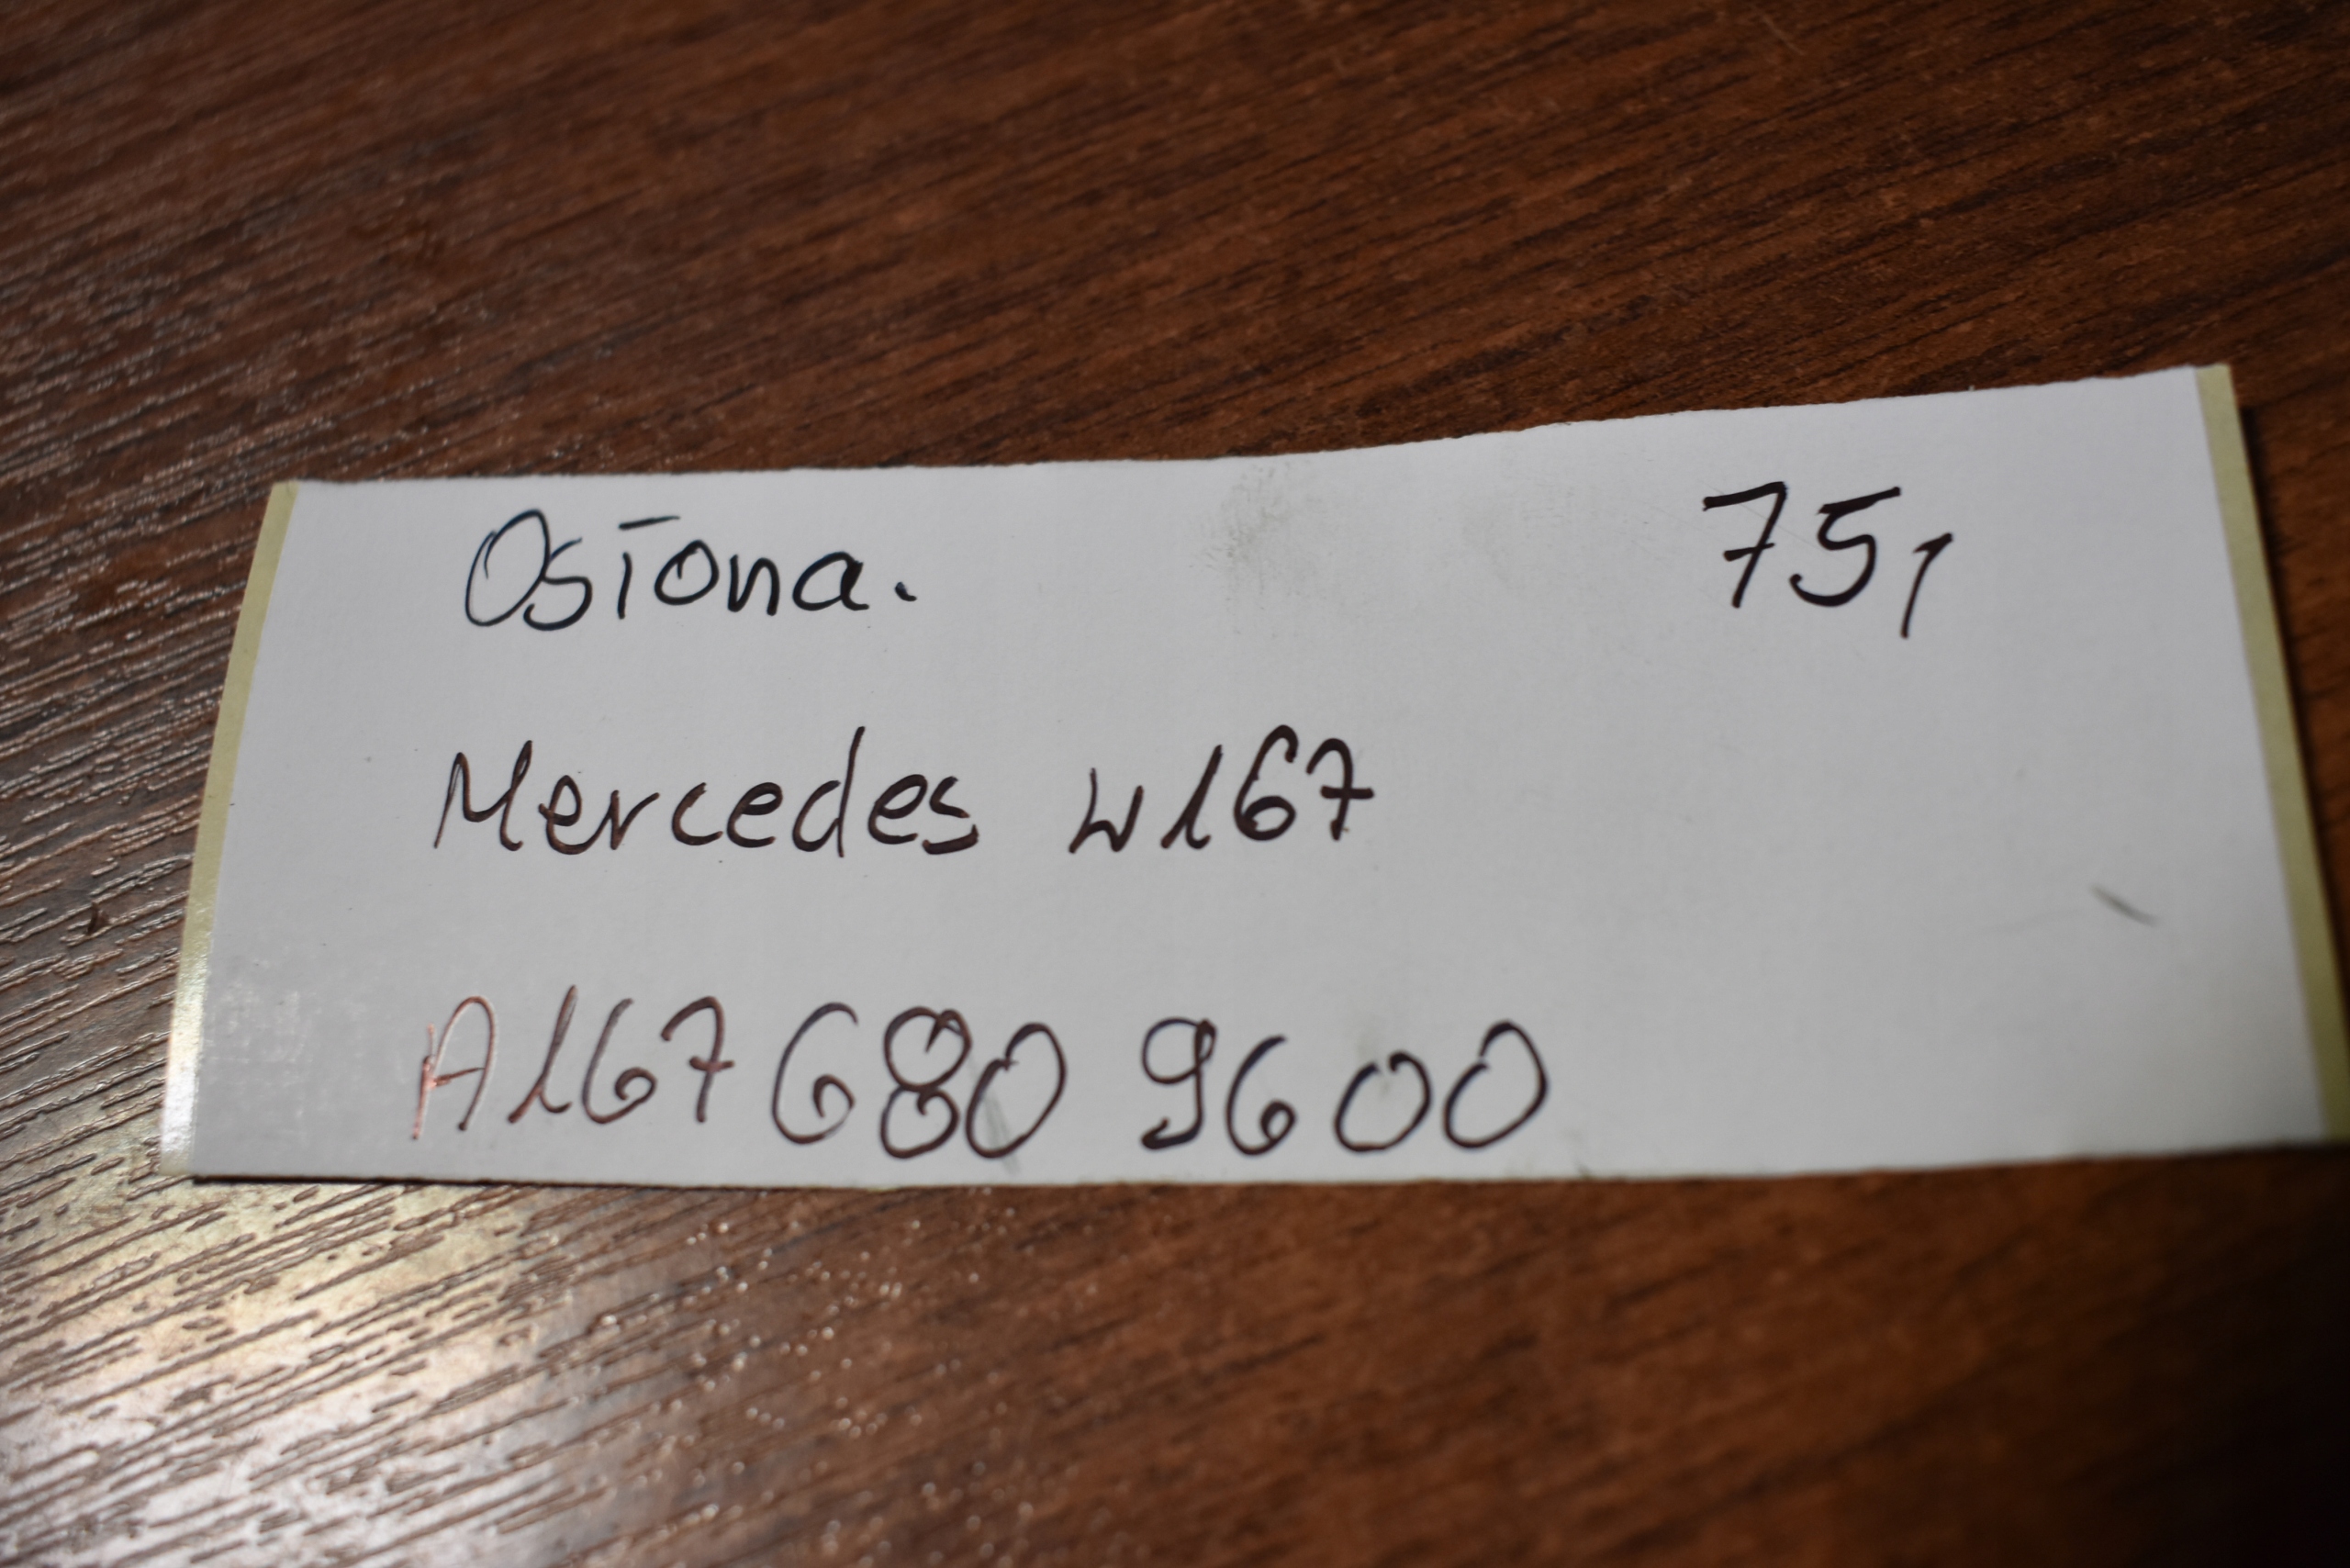 Osłona. 75,
Mercedes w167
A167 680 9600